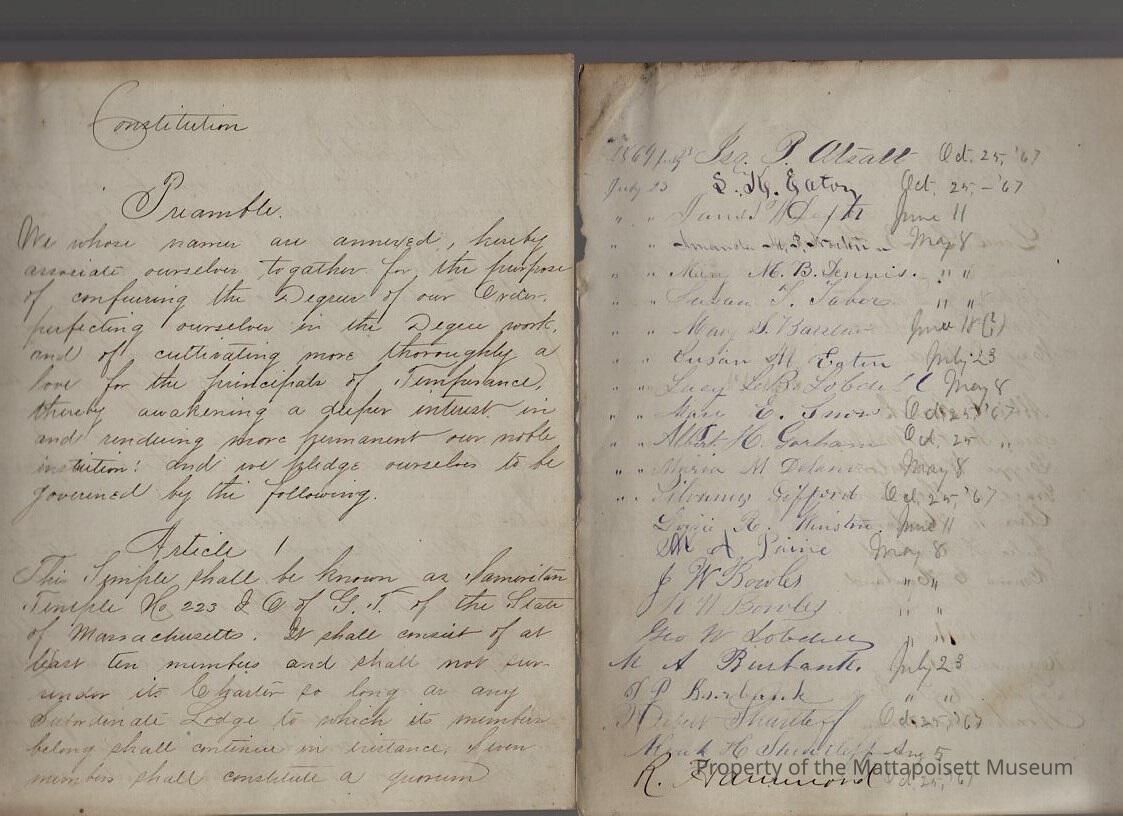 Constitution
Preamble.
We whose names are annexed, hereby
associate ourselves together for the purpose
of confering the Degrees of our Order.
perfecting ourselves in the Degree work,
and of cultivating more thoroughly a
love for the principals of Temperance,
thereby awakening a deeper interest in
and rendering more permanent our noble
instution: and we pledge ourselves to be
governed by the following.
Article 1
This Temple shall be known as Samaritan
Temple No 223 I O of G. T. of the State
of Massachusetts. It shall consist of at
least ten members and shall not sur-
render its Charter so long as any
Subordinate Lodge to which its members
belong shall continue in existance. Seven
members shall constitute a quorum
Oct. 25, '67
July 23 S. K. Eaton Oct. 25, - '67
" " June 11
" " Amanda May 8
" " M. B. Dennis. " "
" " Susan T. Taber " "
" " Mary S. June 18 (?)
" " Susan M. Eaton July 23
" " Lucy Lobdell May 8
" " E. Snow Oct 25, '67
" " Albert H. Gorham Oct. 25 "
" " Maria M May 8
" " Gifford Oct. 25, '67
R. Winston. June 11
M A Paine May 8
J W Bowles " "
N Bowles " "
Geo W Lobdell " "
M A Burbank. July 23
P Burbank " "
Oct 25, '67
H Shurtleff Aug 5
R. Hammond Oct. 25, '67
Property of the Mattapoisett Museum